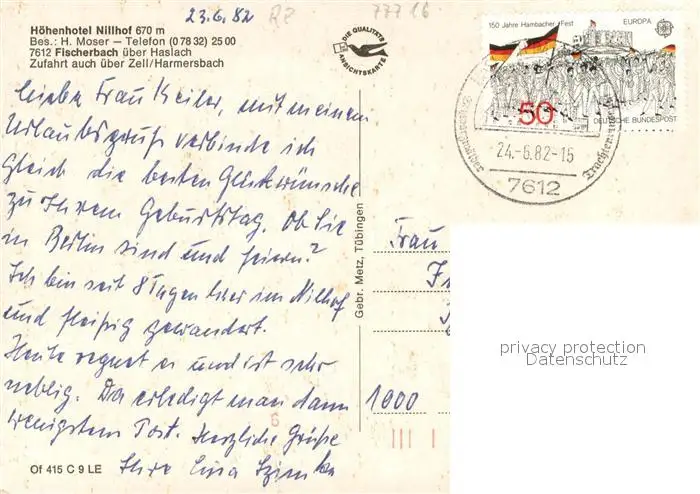 23.6.82 RZ 77716
Höhenhotel Nillhof 670 m
Bes.: H. Moser – Telefon (0 78 32) 25 00
7612 Fischerbach über Haslach
Zufahrt auch über Zell/Harmersbach
DIE QUALITÄTS
ANSICHTSKARTE
150 Jahre Hambacher Fest EUROPA
50
DEUTSCHE BUNDESPOST
24.-6.82-15
7612
Trachten
Liebe Frau Keiler, mit meinem
Urlaubsgruß verbinde ich
Gleich die besten Glückwünsche
zu Ihrem Geburtstag. Ob Sie
in Berlin sind und feiern?
Ich bin seit 8 Tagen hier im Nillhof
und fleißig gewandert.
Heute regnet es und ist sehr
neblig. Da erledigt man dann
wenigstens Post. Herzliche Grüße
Ihre
Gebr. Metz, Tübingen
Frau
1000
privacy protection
Datenschutz
Of 415 C 9 LE